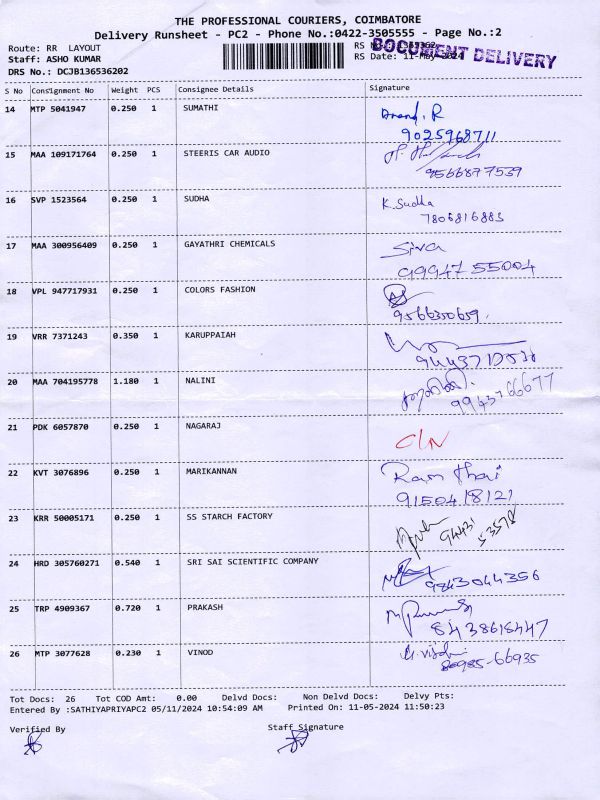 THE PROFESSIONAL COURIERS, COIMBATORE
Delivery Runsheet - PC2 - Phone No.:0422-3505555 - Page No.:2
Route: RR LAYOUT
RS
DOCUMENT DELIVERY
Staff: ASHO KUMAR
RS Date: 11-May-2024
DRS No.: DCJB136536202
S No Consignment No Weight PCS Consignee Details Signature
14 MTP 5041947 0.250 1 SUMATHI
Anand. R
9025968711
15 MAA 109171764 0.250 1 STEERIS CAR AUDIO
9566877539
16 SVP 1523564 0.250 1 SUDHA
K. Sudha
7806816885
17 MAA 300956409 0.250 1 GAYATHRI CHEMICALS
Siva
9994755004
18 VPL 947717931 0.250 1 COLORS FASHION
9566350659.
19 VRR 7371243 0.350 1 KARUPPAIAH
20 MAA 704195778 1.180 1 NALINI
9943766677
21 PDK 6057870 0.250 1 NAGARAJ
C/N
22 KVT 3076896 0.250 1 MARIKANNAN
Ram thai
9150418121
23 KRR 50005171 0.250 1 SS STARCH FACTORY
94431 53578
24 HRD 305760271 0.540 1 SRI SAI SCIENTIFIC COMPANY
9843044356
25 TRP 4909367 0.720 1 PRAKASH
8438618447
26 MTP 3077628 0.230 1 VINOD
-66935
Tot Docs: 26 Tot COD Amt: 0.00 Delvd Docs: Non Delvd Docs: Delvy Pts:
Entered By :SATHIYAPRIYAPC2 05/11/2024 10:54:09 AM Printed On: 11-05-2024 11:50:23
Verified By Staff Signature